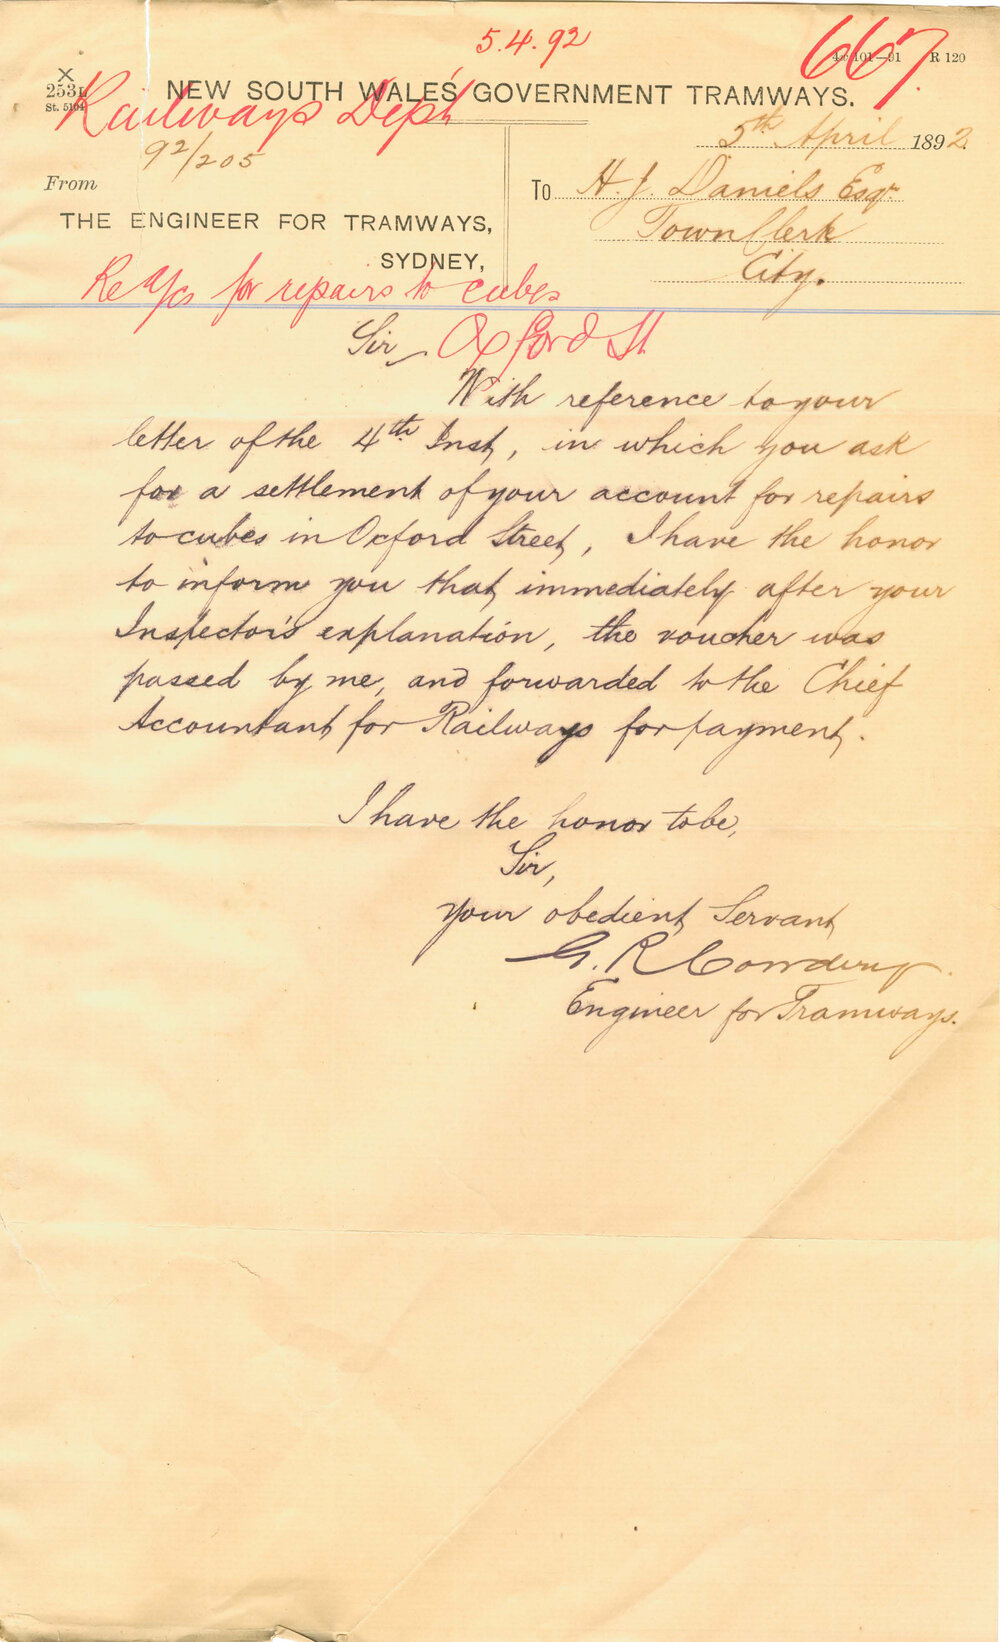 5.4.92
667
X
253L
St. 5104
R 120
Railways Dep't
NEW SOUTH WALES GOVERNMENT TRAMWAYS.
92/205
5th April 1892
From
To H. J. Daniels Esqr
THE ENGINEER FOR TRAMWAYS,
Town Clerk
SYDNEY,
City.
Re a/cs for repairs to cubes
Oxford St
Sir,
With reference to your
letter of the 4th Inst, in which you ask
for a settlement of your account for repairs
to cubes in Oxford Street, I have the honor
to inform you that immediately after your
Inspector's explanation, the voucher was
passed by me, and forwarded to the Chief
Accountant for Railways for payment.
I have the honor to be,
Sir,
your obedient Servant
G. R. Cowdery
Engineer for Tramways.